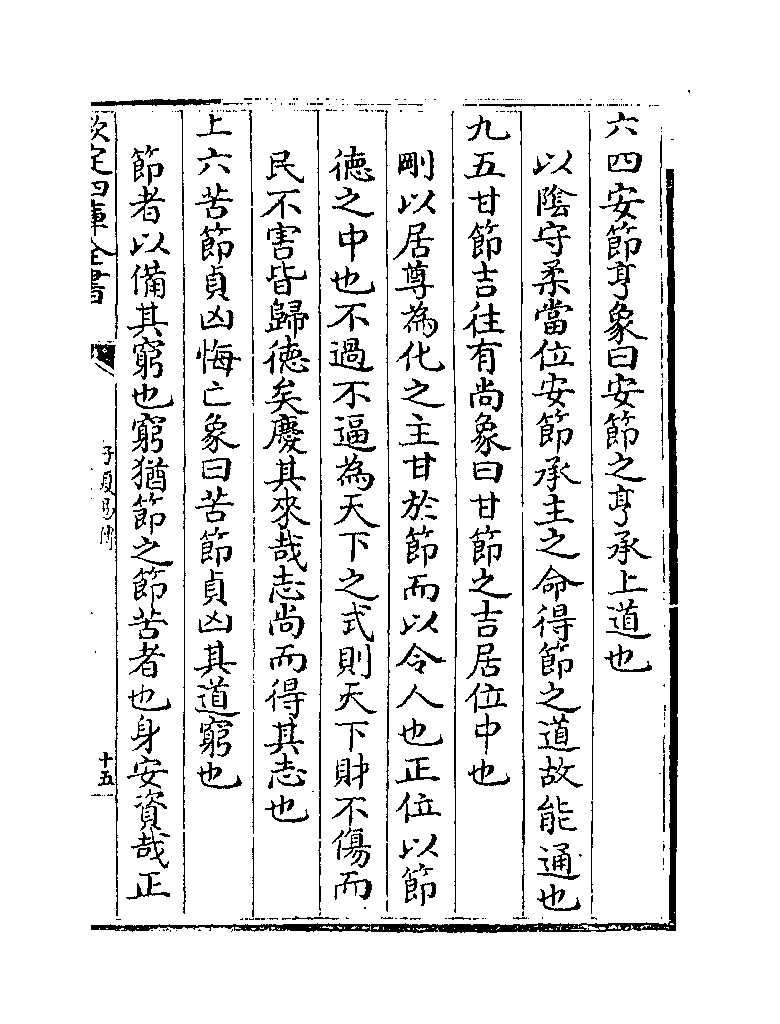 六四安節亨象曰安節之亨承上道也
以陰守柔當位安節承主之命得節之道故能通也
九五甘節吉往有尚象曰甘節之吉居位中也
剛以居尊為化之主甘於節而以令人也正位以節
徳之中也不過不逼為天下之式則天下財不傷而
民不害皆歸徳矣慶其來哉志尚而得其志也
上六苦節貞凶悔亡象曰苦節貞凶其道窮也
節者以備其窮也窮猶節之節苦者也身安資哉正
欽定四庫全書
子夏易傳
十五